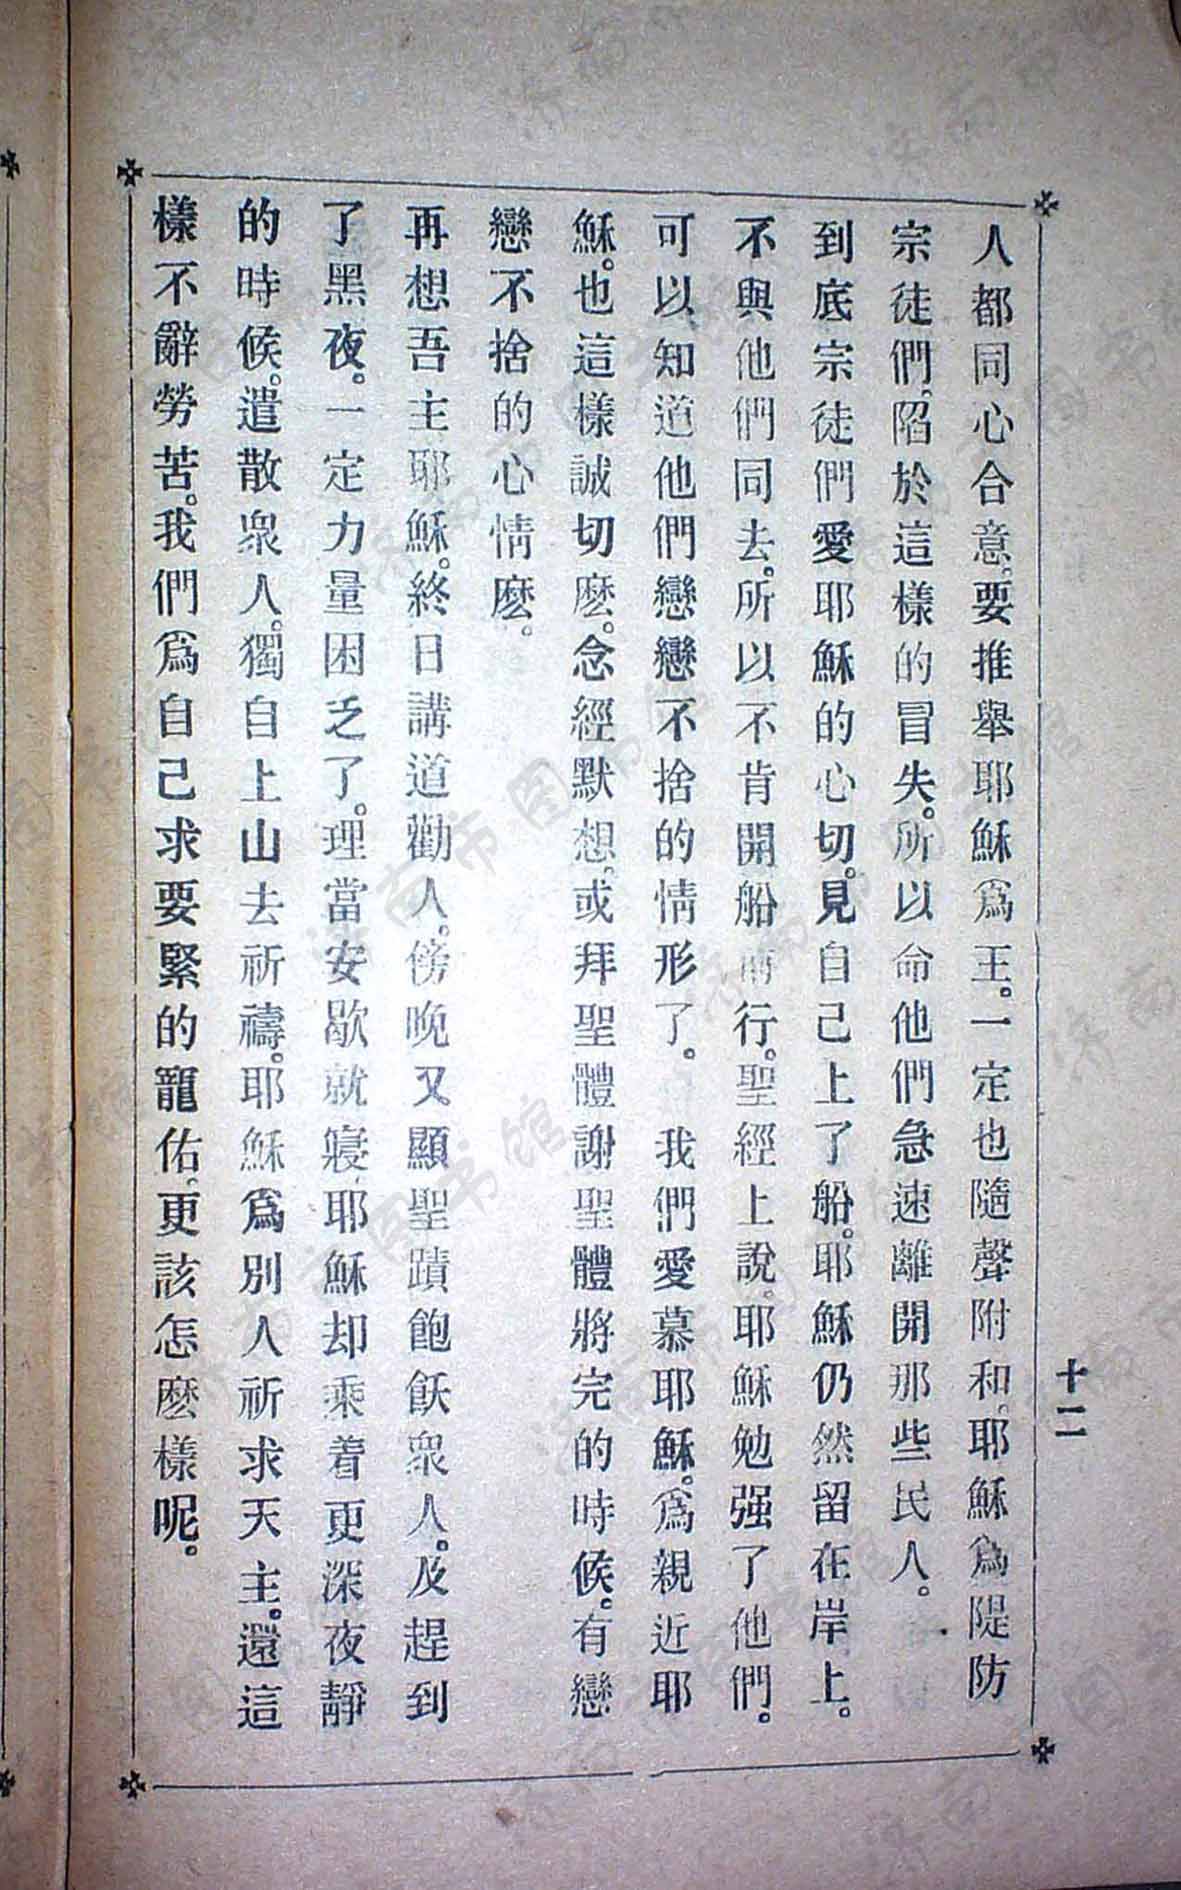 人都同心合意。要推舉耶穌爲王。一定也隨聲附和。耶穌爲隄防
宗徒們。陷於這樣的冒失。所以命他們急速離開那些民人。
到底宗徒們愛耶穌的心切。見自己上了船。耶穌仍然留在岸上。
不與他們同去。所以不肯開船前行。聖經上說。耶穌勉强了他們。
可以知道他們戀戀不捨的情形了。 我們愛慕耶穌。爲親近耶
穌。也這樣誠切麽。念經默想。或拜聖體謝聖體將完的時候。有戀
戀不捨的心情麽。
再想吾主耶穌。終日講道勸人。傍晚又顯聖蹟飽飫衆人。及趕到
了黑夜。一定力量困乏了。理當安歇就寢。耶穌却乘着更深夜靜
的時候。遣散衆人。獨自上山去祈禱。耶穌爲別人祈求天主。還這
樣不辭勞苦。我們爲自己求要緊的寵佑。更該怎麽樣呢。
十二
济南市图书馆